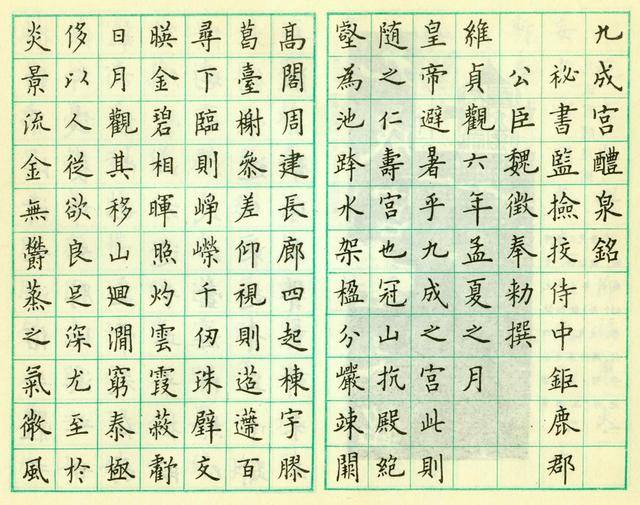 九成宮醴泉銘
秘書監撿挍侍中鉅鹿郡
公臣魏徵奉勅撰
維貞觀六年孟夏之月
皇帝避暑乎九成之宮此則
随之仁壽宮也冠山抗殿絕
壑為池跨水架楹分巖竦闕
高閣周建長廊四起棟宇膠
葛臺榭參差仰視則迢遰百
尋下臨則崢嶸千仞珠璧交
暎金碧相暉照灼雲霞蔽虧
日月觀其移山廻澗窮泰極
侈以人從欲良足深尤至於
炎景流金無鬱蒸之氣微風